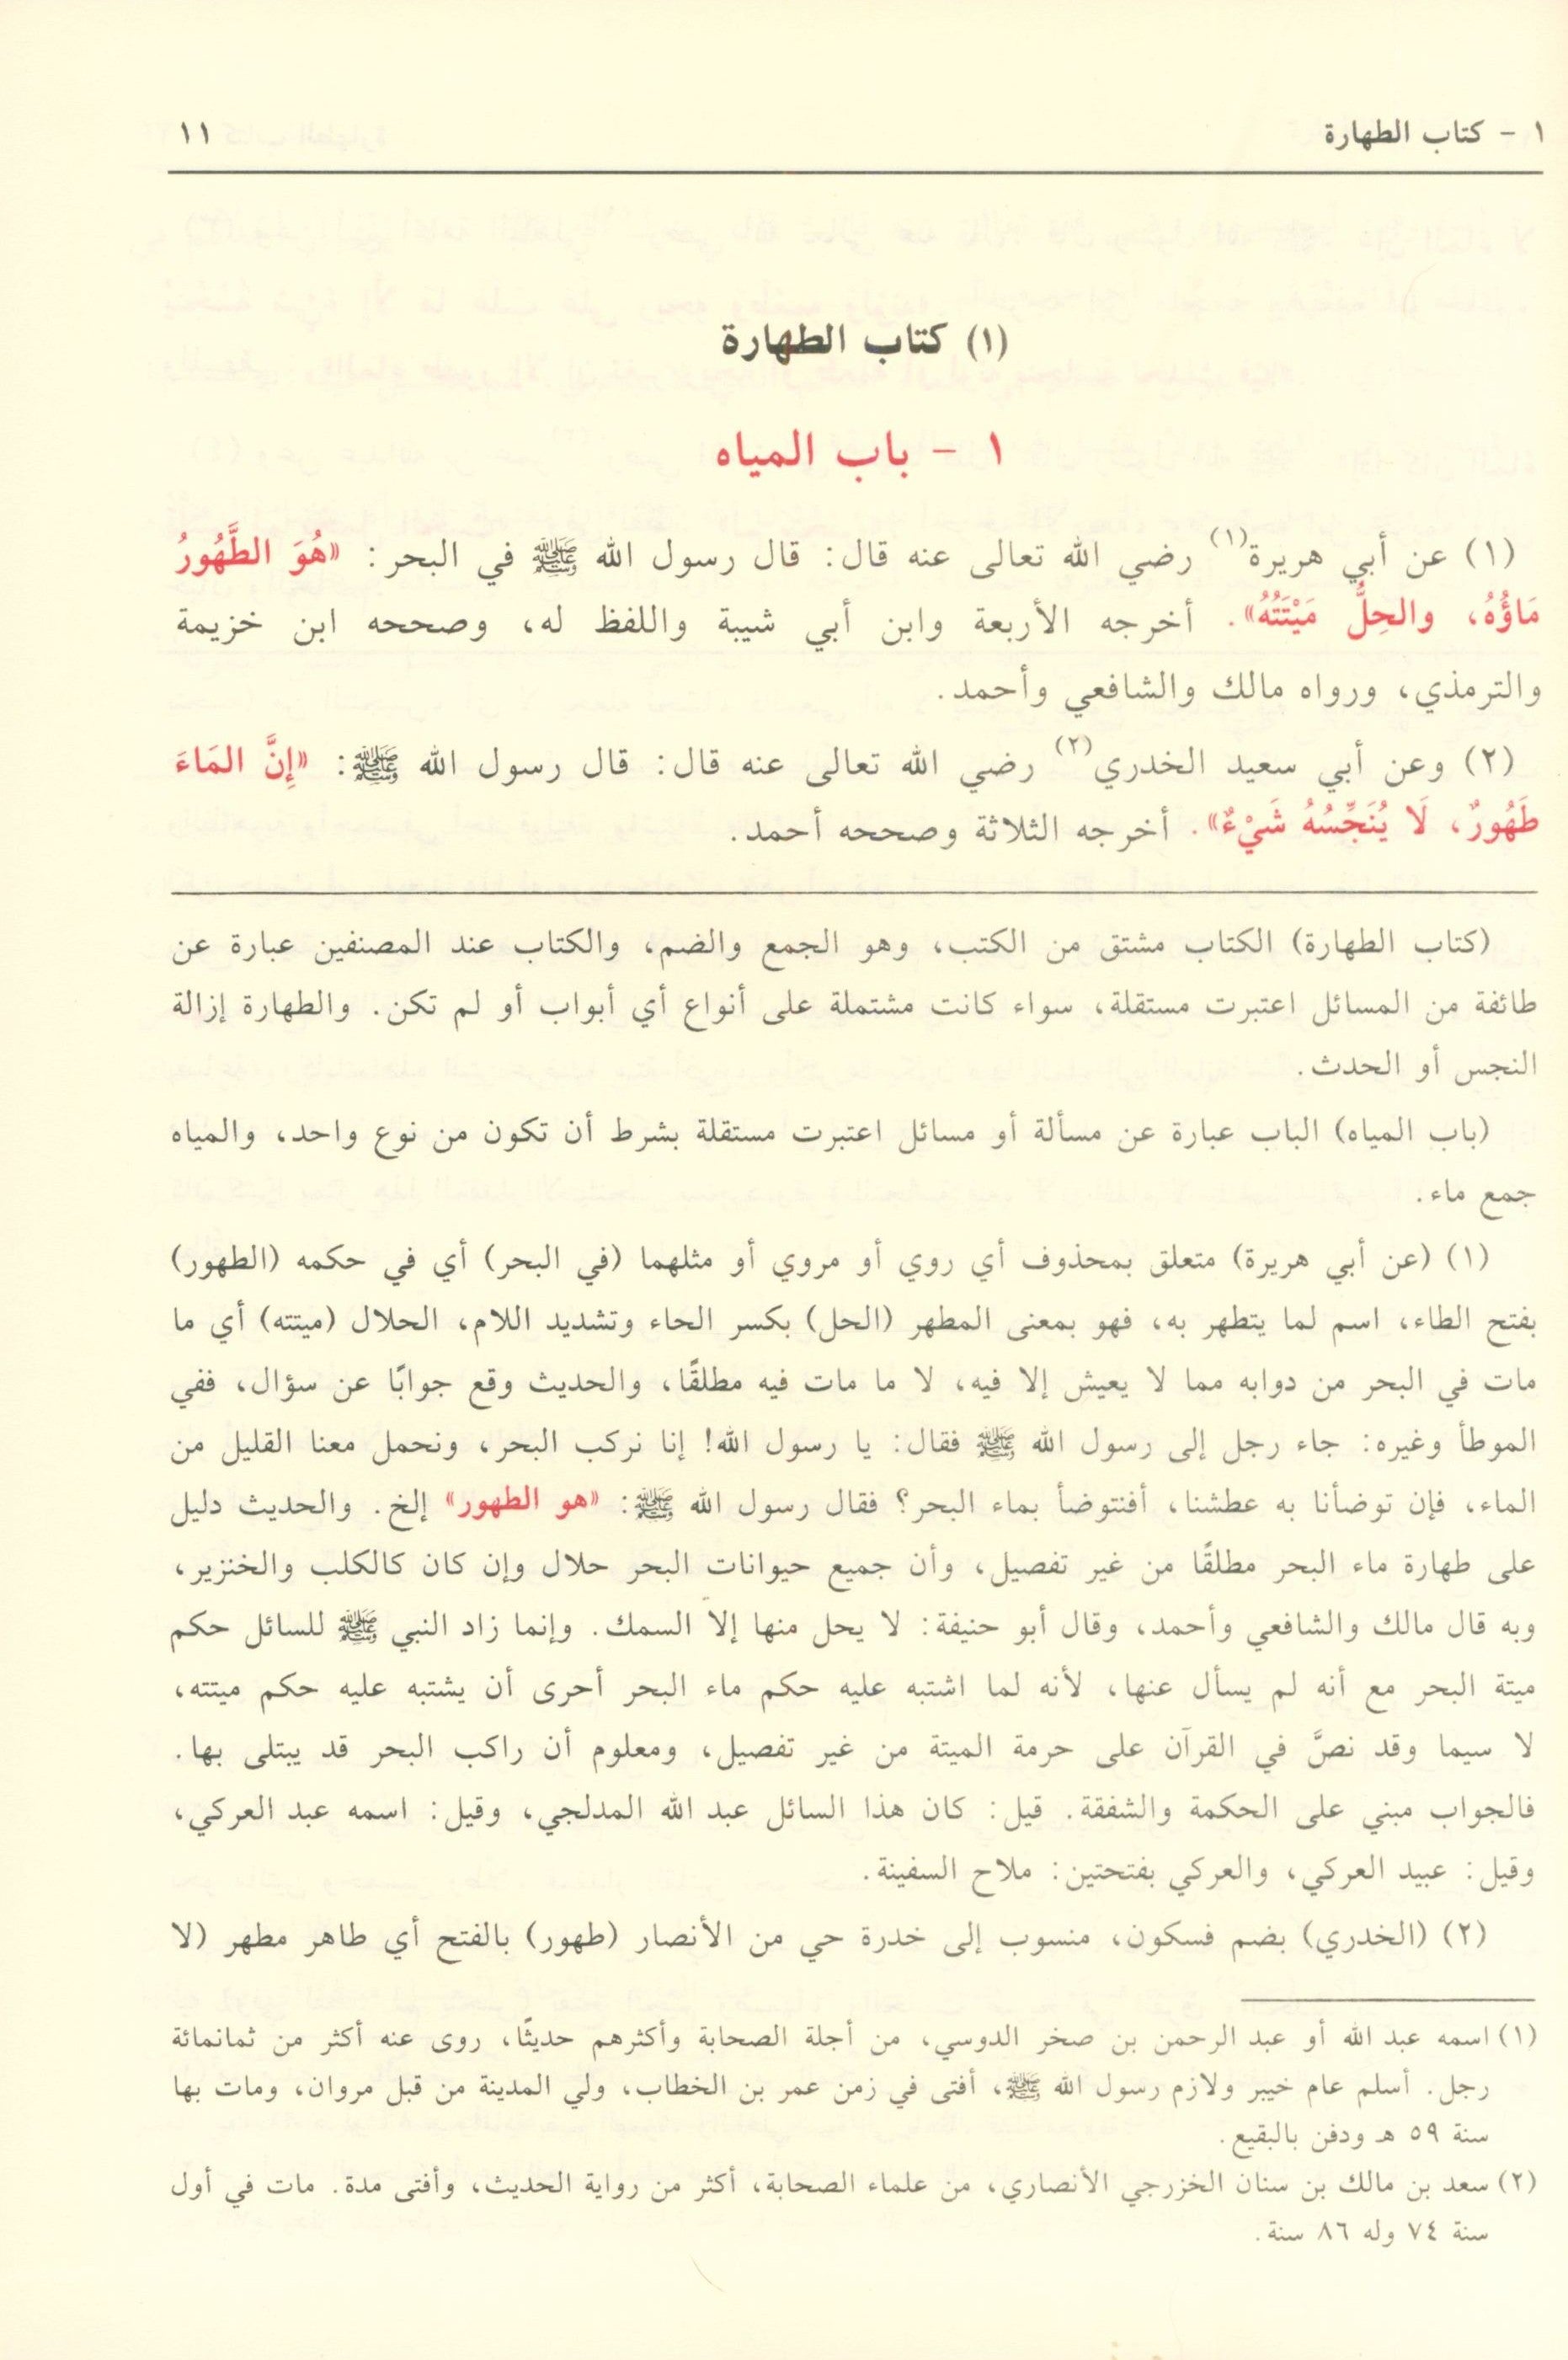 ١ - كتاب الطهارة ١١
(١) كتاب الطهارة
١ - باب المياه
(١) عن أبي هريرة(١) رضي الله تعالى عنه قال: قال رسول الله ﷺ في البحر: «هُوَ الطَّهُورُ
مَاؤُهُ، والحِلُّ مَيْتَتُهُ». أخرجه الأربعة وابن أبي شيبة واللفظ له، وصححه ابن خزيمة
والترمذي، ورواه مالك والشافعي وأحمد.
(٢) وعن أبي سعيد الخدري(٢) رضي الله تعالى عنه قال: قال رسول الله ﷺ: «إِنَّ المَاءَ
طَهُورٌ، لَا يُنَجِّسُهُ شَيْءٌ». أخرجه الثلاثة وصححه أحمد.
(كتاب الطهارة) الكتاب مشتق من الكتب، وهو الجمع والضم، والكتاب عند المصنفين عبارة عن
طائفة من المسائل اعتبرت مستقلة، سواء كانت مشتملة على أنواع أي أبواب أو لم تكن. والطهارة إزالة
النجس أو الحدث.
(باب المياه) الباب عبارة عن مسألة أو مسائل اعتبرت مستقلة بشرط أن تكون من نوع واحد، والمياه
جمع ماء.
(١) (عن أبي هريرة) متعلق بمحذوف أي روي أو مروي أو مثلهما (في البحر) أي في حكمه (الطهور)
بفتح الطاء، اسم لما يتطهر به، فهو بمعنى المطهر (الحل) بكسر الحاء وتشديد اللام، الحلال (ميتته) أي ما
مات في البحر من دوابه مما لا يعيش إلا فيه، لا ما مات فيه مطلقًا، والحديث وقع جوابًا عن سؤال، ففي
الموطأ وغيره: جاء رجل إلى رسول الله ﷺ فقال: يا رسول الله! إنا نركب البحر، ونحمل معنا القليل من
الماء، فإن توضأنا به عطشنا، أفنتوضأ بماء البحر؟ فقال رسول الله ﷺ: «هو الطهور» إلخ. والحديث دليل
على طهارة ماء البحر مطلقًا من غير تفصيل، وأن جميع حيوانات البحر حلال وإن كان كالكلب والخنزير،
وبه قال مالك والشافعي وأحمد، وقال أبو حنيفة: لا يحل منها إلا السمك. وإنما زاد النبي ﷺ للسائل حكم
ميتة البحر مع أنه لم يسأل عنها، لأنه لما اشتبه عليه حكم ماء البحر أحرى أن يشتبه عليه حكم ميتته،
لا سيما وقد نصَّ في القرآن على حرمة الميتة من غير تفصيل، ومعلوم أن راكب البحر قد يبتلى بها.
فالجواب مبني على الحكمة والشفقة. قيل: كان هذا السائل عبد الله المدلجي، وقيل: اسمه عبد العركي،
وقيل: عبيد العركي، والعركي بفتحتين: ملاح السفينة.
(٢) (الخدري) بضم فسكون، منسوب إلى خدرة حي من الأنصار (طهور) بالفتح أي طاهر مطهر (لا
(١) اسمه عبد الله أو عبد الرحمن بن صخر الدوسي، من أجلة الصحابة وأكثرهم حديثًا، روى عنه أكثر من ثمانمائة
رجل. أسلم عام خيبر ولازم رسول الله ﷺ، أفتى في زمن عمر بن الخطاب، ولي المدينة من قبل مروان، ومات بها
سنة ٥٩ هـ ودفن بالبقيع.
(٢) سعد بن مالك بن سنان الخزرجي الأنصاري، من علماء الصحابة، أكثر من رواية الحديث، وأفتى مدة. مات في أول
سنة ٧٤ وله ٨٦ سنة.